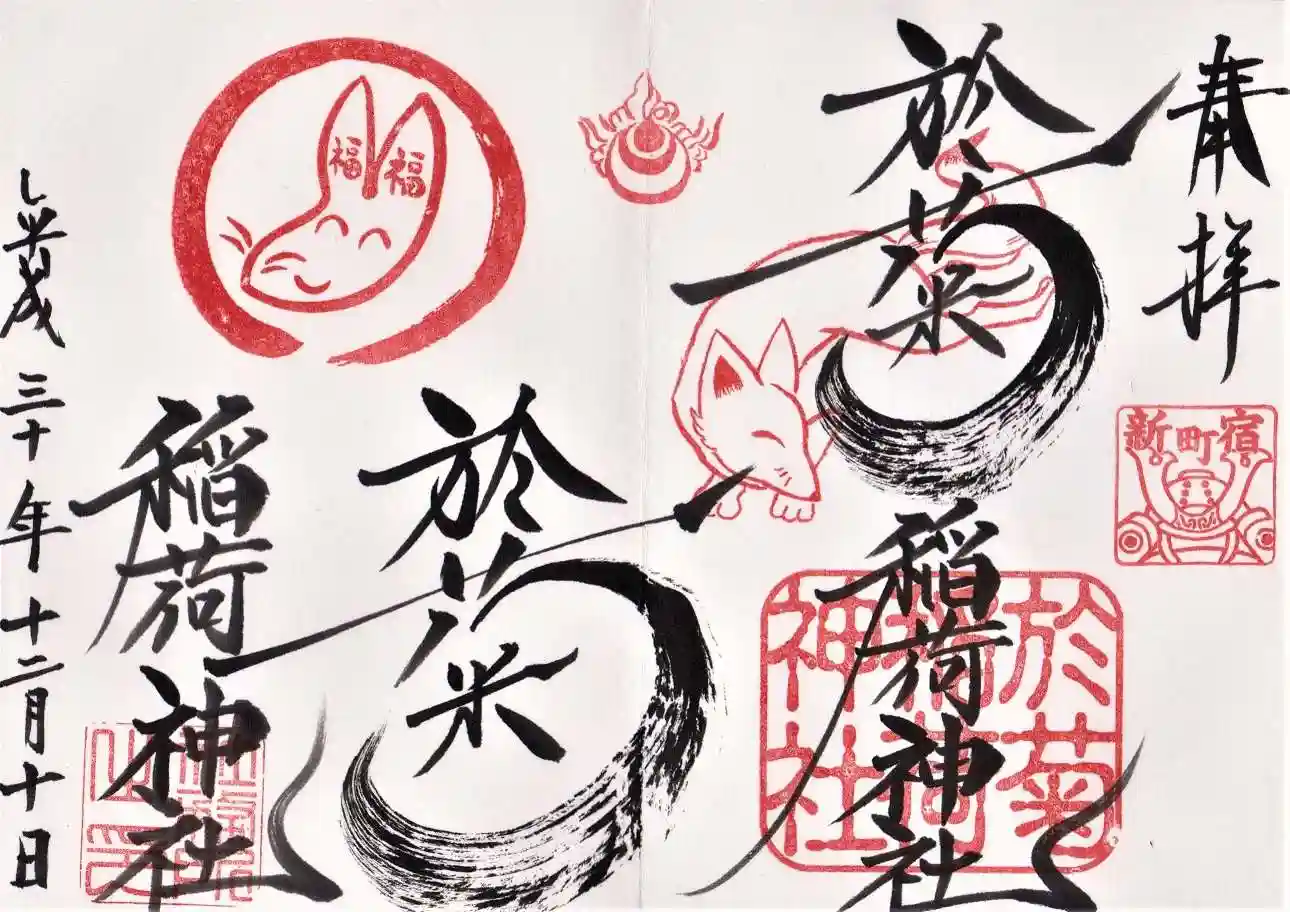 奉拝
於菊
稲荷神社
新町宿
於菊
稲荷
神社
福福
於菊
稲荷神社
歳三十年十二月十日